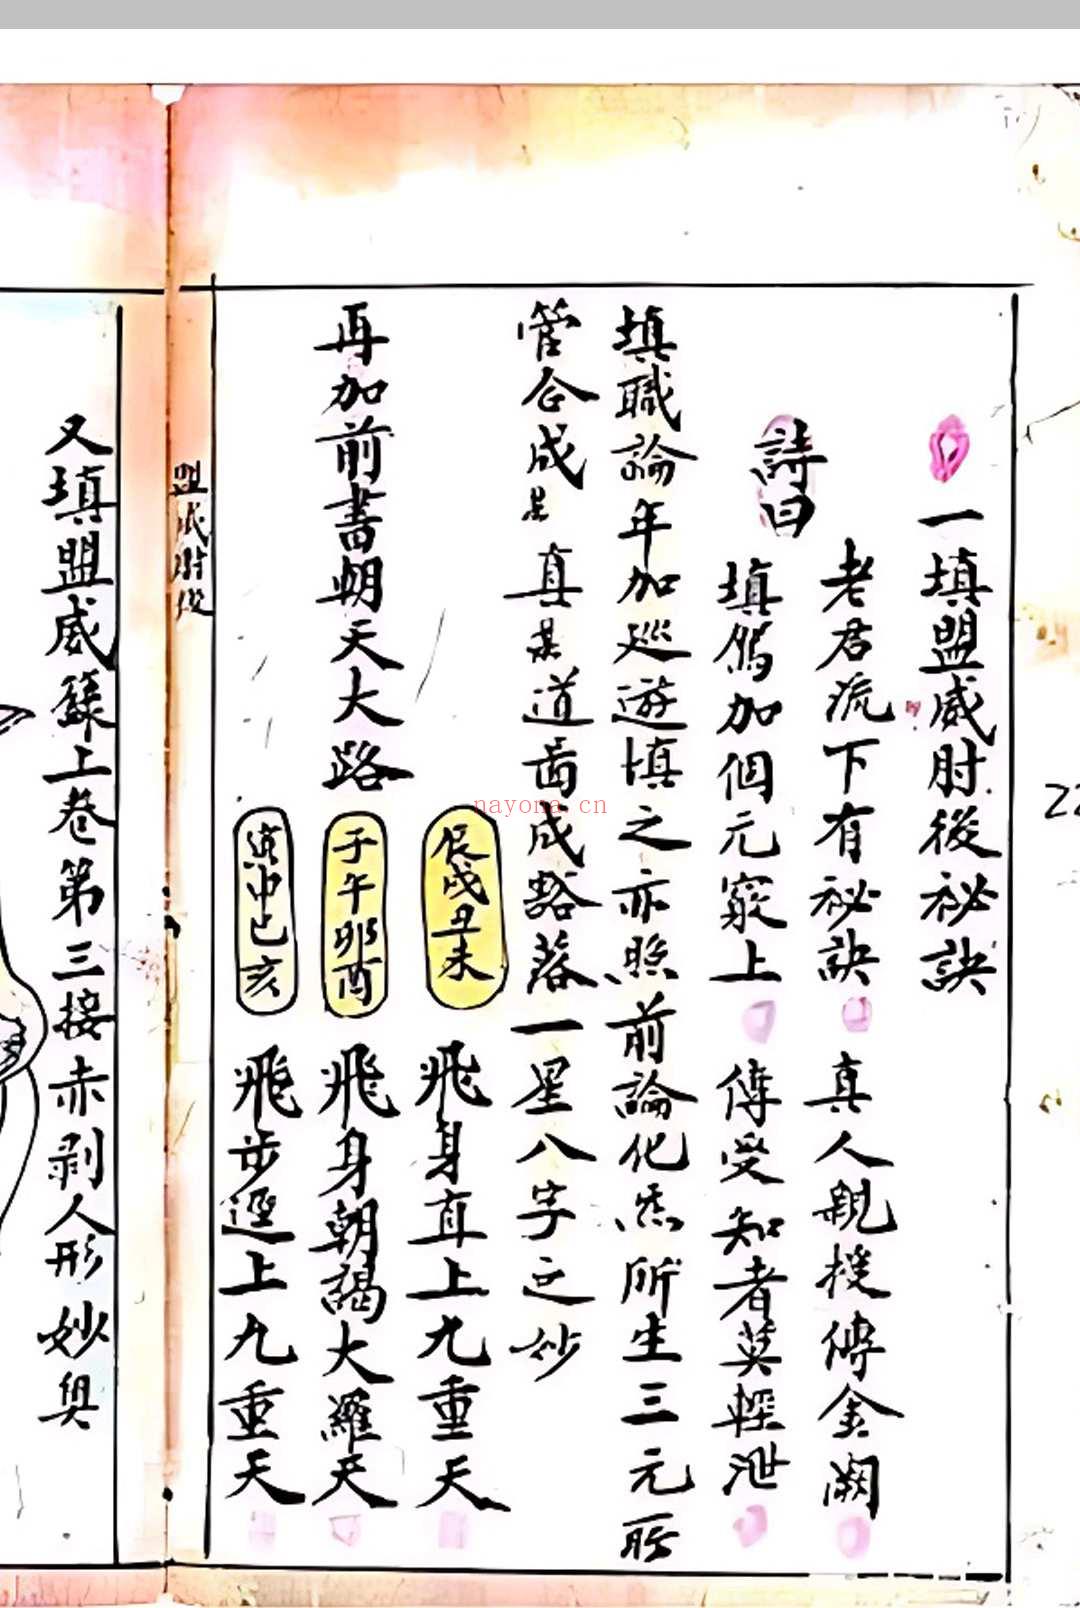 一填盟威肘後祕訣
老君流下有祕訣 真人親授傳金闕
詩曰
填鴈加個元竅上 傳受知者莫輕泄
填職論年加巡遊填之亦照前論化炁所生三元所
管合成某真某道啚成豁落一星八字之妙
再加前書朝天大路
辰戌丑未 飛身直上九重天
子午卯酉 飛身朝謁大羅天
寅申巳亥 飛步逕上九重天
盟威
又填盟威籙上卷第三接赤剥人形妙奥
nayona.cn
22